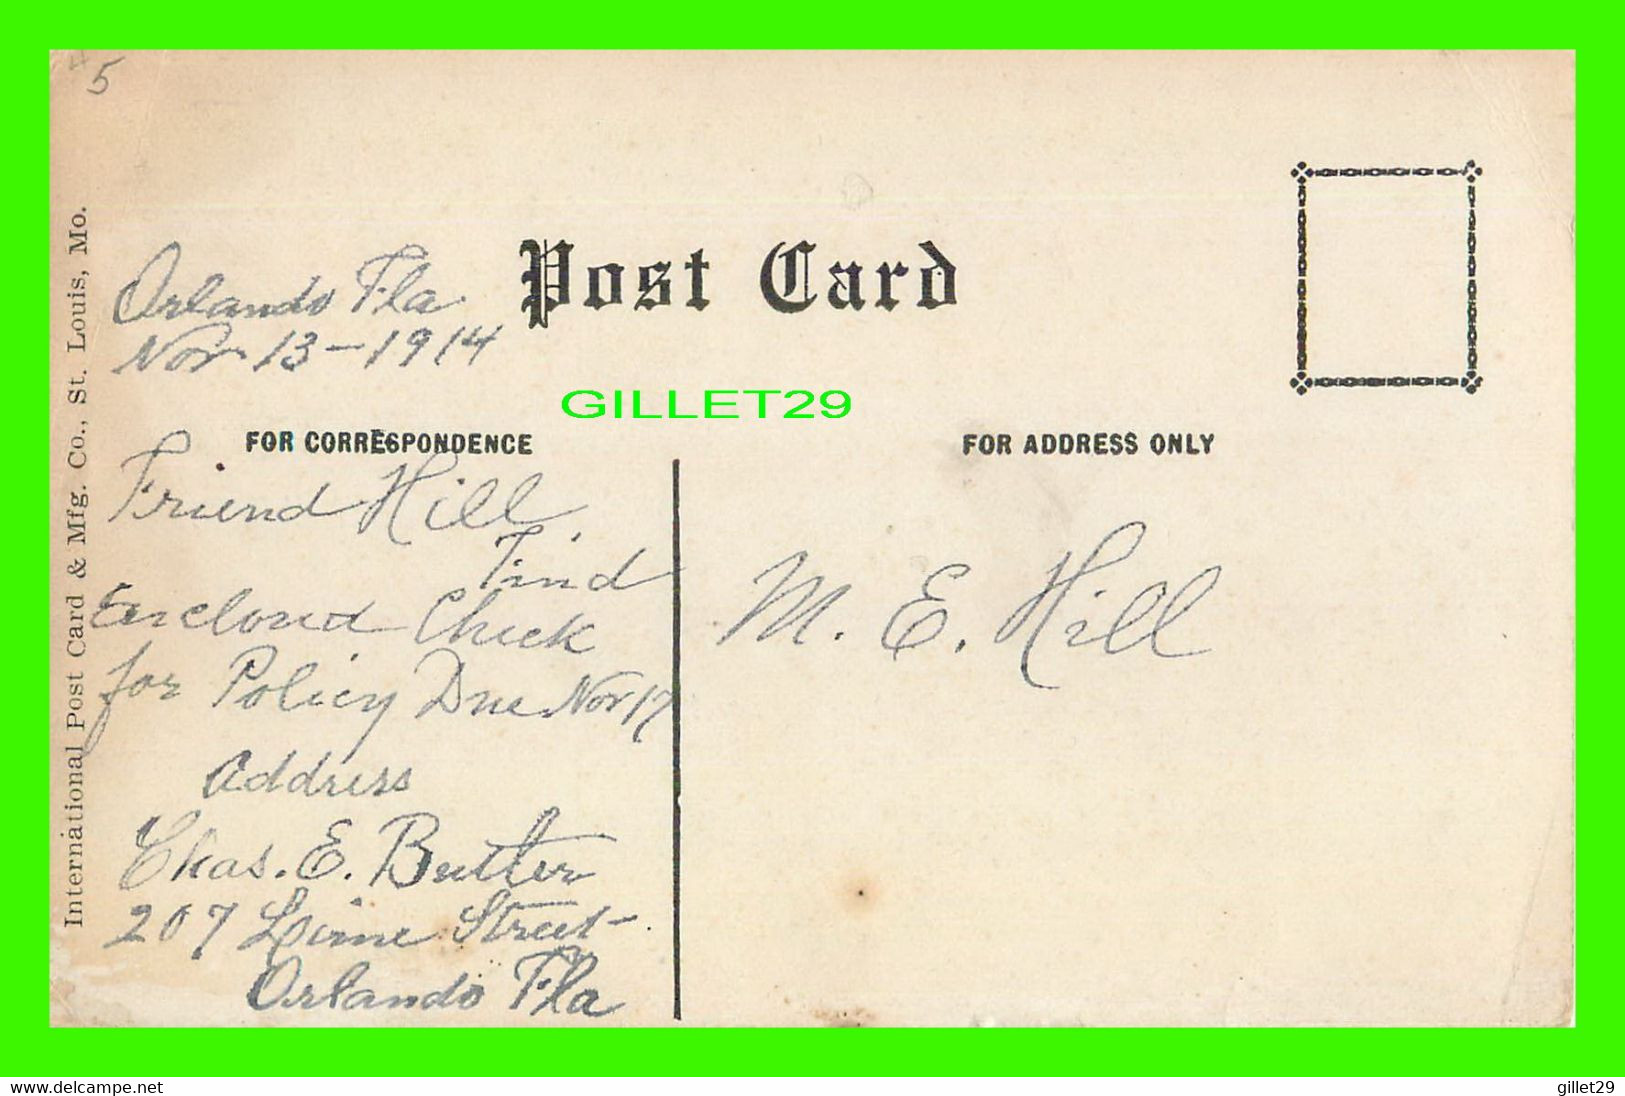 5
International Post Card & Mfg. Co., St. Louis, Mo.
Post Card
Orlando Fla
Nov 13-1914
GILLET29
FOR CORRESPONDENCE
FOR ADDRESS ONLY
Friend Hill,
Find
Enclosed Check
for Policy Due Nov 17
Address
Chas. E. Butter
207 Lime Street
Orlando Fla
M. E. Hill
www.delcampe.net
gillet29